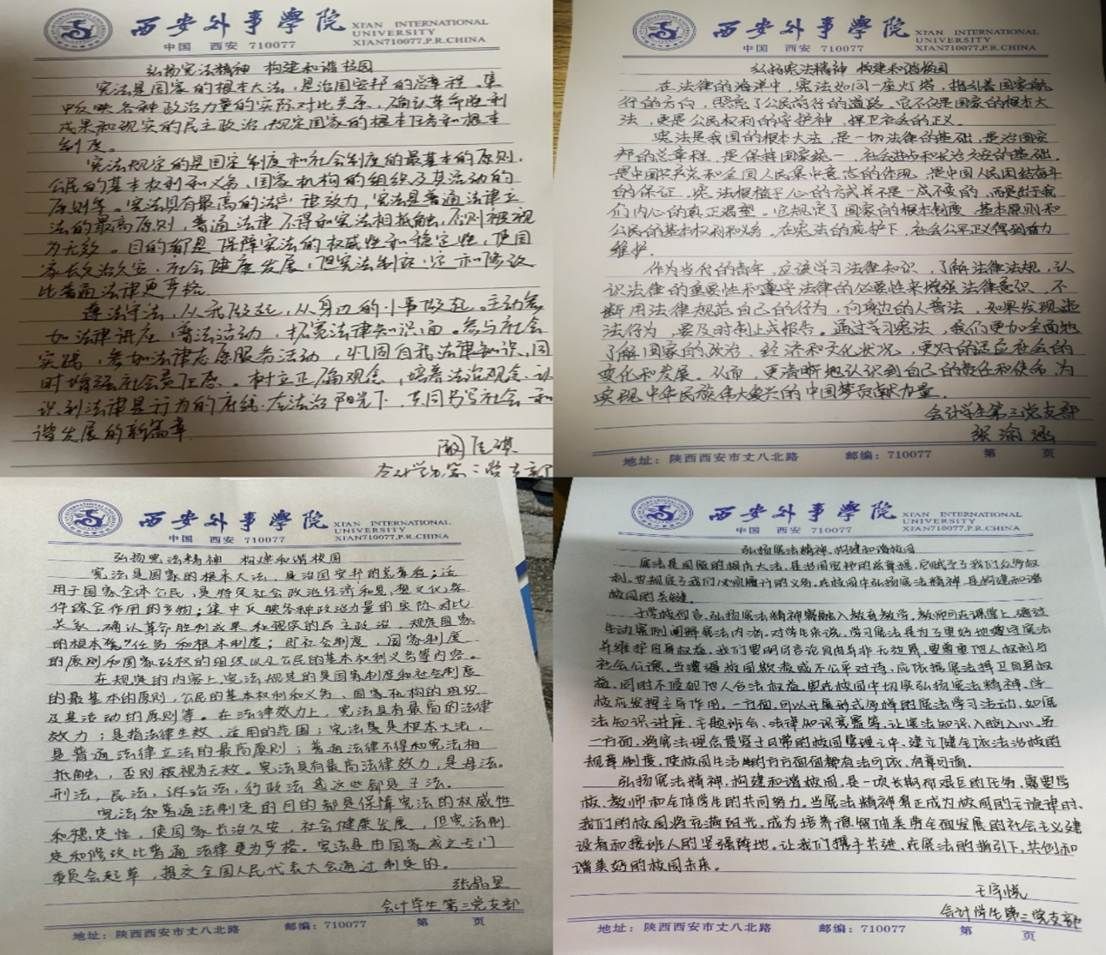 西安外事學院
XIAN INTERNATIONAL
UNIVERSITY
中国 西安 710077 XIAN710077,P.R.CHINA
弘扬宪法精神 构建和谐校园
宪法是国家的根本大法,是治国安邦的总章程。集
中反映各种政治力量的实际对比关系,确认革命胜利
成果和现实的民主政治,规定国家的根本任务和根本
制度。
宪法规定的是国家制度和社会制度的最基本的原则,
公民的基本权利和义务,国家机构的组织及其活动的
原则等。宪法具有最高的法律效力,宪法是普通法律立
法的最高原则,普通法律不得和宪法相抵触,否则被视
为无效。目的都是保障宪法的权威性和稳定性,使国
家长治久安,社会健康发展,但宪法制定和修改
比普通法律更严格
遵法守法,从我做起,从身边的小事做起。主动参
加法律讲座,普法活动,拓宽法律知识面。参与社会
实践,参加法律志愿服务活动,巩固自我法律知识,同
时增强社会责任感。树立正确观念,培养法治观念,认
识到法律是行为的底线.在法治阳光下,共同书写社会和
谐发展的新篇章
会计学生第三党支部
西安外事學院
XIAN INTERNATIONAL
UNIVERSITY
中国 西安 710077 XIAN710077,P.R.CHINA
弘扬宪法精神 构建和谐校园
在法律的海洋中,宪法如同一座灯塔,指引着国家航
行的方向,照亮了公民前行的道路。它不仅是国家的根本大
法,更是公民权利的守护神,捍卫社会的正义。
宪法是我国的根本大法,是一切法律的基础,是治国安
邦的总章程,是保持国家统一、社会进步和长治久安的基础。
是中国共产党和全国人民集中意志的体现,是中国人民团结奋斗
的保证,宪法根植于心的方式并不是一成不变的,而是出于我
们内心的真正渴望。它规定了国家的根本制度、基本原则和
公民的基本权利和义务,在宪法的庇护下,社会公平正义得到有力
维护.
作为当代的青年,应该学习法律知识,了解法律法规,认
识法律的重要性和遵守法律的必要性来增强法律意识,不
断用法律规范自己的行为,向身边的人普法,如果发现违
法行为,要及时制止或报告。通过学习宪法,我们更加全面地
了解国家的政治、经济和文化状况,更好的适应社会的
变化和发展。从而,更清晰地认识到自己的责任和使命,为
实现中华民族伟大复兴的中国梦贡献力量.
会计学生第三党支部
张渝涵
地址:陕西西安市丈八北路 邮编:710077 第 页
西安外事學院
XIAN INTERNATIONAL
UNIVERSITY
中国 西安 710077 XIAN710077,P.R.CHINA
弘扬宪法精神 构建和谐校园
宪法是国家的根本大法,是治国安邦的总章程;适
用于国家全体公民,是特定社会政治经济和思想文化条
件综合作用的产物;集中反映各种政治力量的实际对比
关系,确认革命胜利成果和现实的民主政治,规定国家
的根本任务和根本制度;即社会制度,国家制度
的原则和国家政权的组织以及公民的基本权利义务等内容。
在规定的内容上,宪法规定的是国家制度和社会制度
的最基本的原则,公民的基本权利和义务、国家机构的组织
及其活动的原则等。在法律效力上,宪法具有最高的法律
效力;是指法律生效、适用的范围;宪法是根本大法,
是普通法律立法的最高原则;普通法律不得和宪法相
抵触,否则被视为无效。宪法具有最高法律效力,是母法。
刑法,民法,诉讼法,行政法等这些都是子法。
宪法和普通法制定的目的都是保障宪法的权威性
和稳定性,使国家长治久安,社会健康发展,但宪法制
定和修改比普通法律更为严格。宪法是由国家成立专门
委员会起草,提交全国人民代表大会通过制定的。
张晶昱
会计学生第三党支部
地址:陕西西安市丈八北路 邮编:710077 第 页
西安外事學院
XIAN INTERNATIONAL
UNIVERSITY
中国 西安 710077 XIAN710077,P.R.CHINA
弘扬宪法精神,构建和谐校园
宪法是国家的根本大法,是治国安邦的总章程,它赋予了我们众多权
利,也规定了我们必须履行的义务,在校园中弘扬宪法精神,是构建和谐
校园的关键。
于学校而言,弘扬宪法精神需融入教育教学,教师可在课堂上,通过
生动案例阐释宪法内涵。对学生来说,学习宪法是为了更好地遵守宪法
并维护自身权益。我们要明白言论自由并非无边界,要尊重他人权利与
社会公德,当遭遇校园欺凌或不公平对待,应依据宪法捍卫自身权
益,同时不侵犯他人合法权益。要在校园中切实弘扬宪法精神,学
校应发挥主导作用。一方面,可以开展形式多样的宪法学习活动,如宪
法知识讲座、主题班会、法律知识竞赛等,让宪法知识入脑入心,另
一方面,将宪法理念贯穿于日常的校园管理之中,建立健全依法治校的
规章制度,使校园生活的方方面面都有法可依,有章可循。
弘扬宪法精神,构建和谐校园,是一项长期而艰巨的任务,需要学
校、教师和全体学生的共同努力。当宪法精神真正成为校园的主旋律时,
我们的校园将充满阳光,成为培养德智体美劳全面发展的社会主义建
设者和接班人的坚强阵地。让我们携手共进,在宪法的指引下,共创和
谐美好的校园未来。
会计学生第三党支部
地址:陕西西安市丈八北路 邮编:710077 第 页